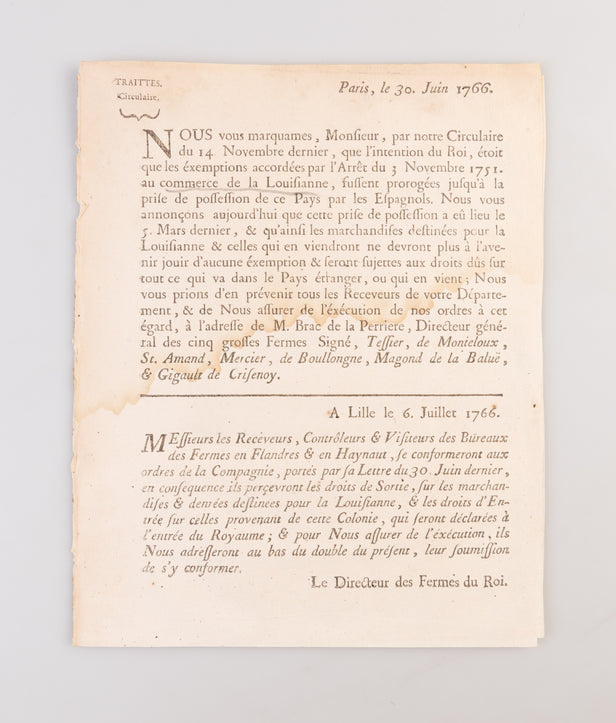 TRAITTES.
Circulaire.
Paris, le 30. Juin 1766.
NOUS vous marquames, Monſieur, par notre Circulaire
du 14 Novembre dernier, que l'intention du Roi, étoit
que les éxemptions accordées par l'Arrêt du 3 Novembre 1751.
au commerce de la Louiſianne, fuſſent prorogées juſqu'à la
priſe de poſſeſſion de ce Pays par les Eſpagnols. Nous vous
annonçons aujourd'hui que cette priſe de poſſeſſion a eû lieu le
5. Mars dernier, & qu'ainſi les marchandiſes deſtinées pour la
Louiſianne & celles qui en viendront ne devront plus à l'ave-
nir jouir d'aucune éxemption & ſeront ſujettes aux droits dûs ſur
tout ce qui va dans le Pays étranger, ou qui en vient; Nous
vous prions d'en prévenir tous les Receveurs de votre Départe-
ment, & de Nous aſſurer de l'éxécution de nos ordres à cet
égard, à l'adreſſe de M. Brac de la Perriere, Directeur géné-
ral des cinq groſſes Fermes Signé, Teſſier, de Monteloux,
St. Amand, Mercier, de Boullongne, Magond de la Baluë,
& Gigault de Criſenoy.
A Lille le 6. Juillet 1766.
MEſſieurs les Recéveurs, Contrôleurs & Viſiteurs des Bureaux
des Fermes en Flandres & en Haynaut, ſe conformeront aux
ordres de la Compagnie, portés par ſa Lettre du 30. Juin dernier,
en conſequence ils perçevront les droits de Sortie, ſur les marchan-
diſes & denrées deſtinées pour la Louiſianne, & les droits d'En-
trée ſur celles provenant de cette Colonie, qui ſeront déclarées à
l'entrée du Royaume; & pour Nous aſſurer de l'éxécution, ils
Nous adreſſeront au bas du double du préſent, leur ſoumiſſion
de s'y conformer.
Le Directeur des Fermes du Roi.